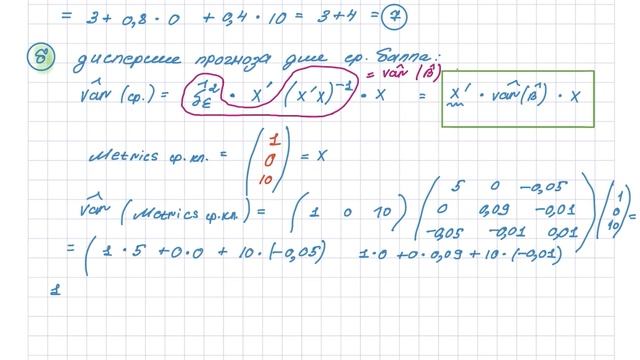 = 3 + 0,8 · 0 + 0,4 · 10 = 3+4 = 7
8 дисперсия прогноза для ср. балла:
= Var̂(β̂)
Var̂(ср.) = σ̂²ε · X' (X'X)⁻¹ · X = X' · Var̂(β̂) · X
Metrics ср.кл. = (1 0 10) = X
Var̂(Metrics ср.кл.) = (1 0 10) (5 0 -0,05
0 0,09 -0,01
-0,05 -0,01 0,01) (1 0 10) =
= (1·5 + 0·0 + 10·(-0,05) 1·0 + 0·0,09 + 10·(-0,01)
1